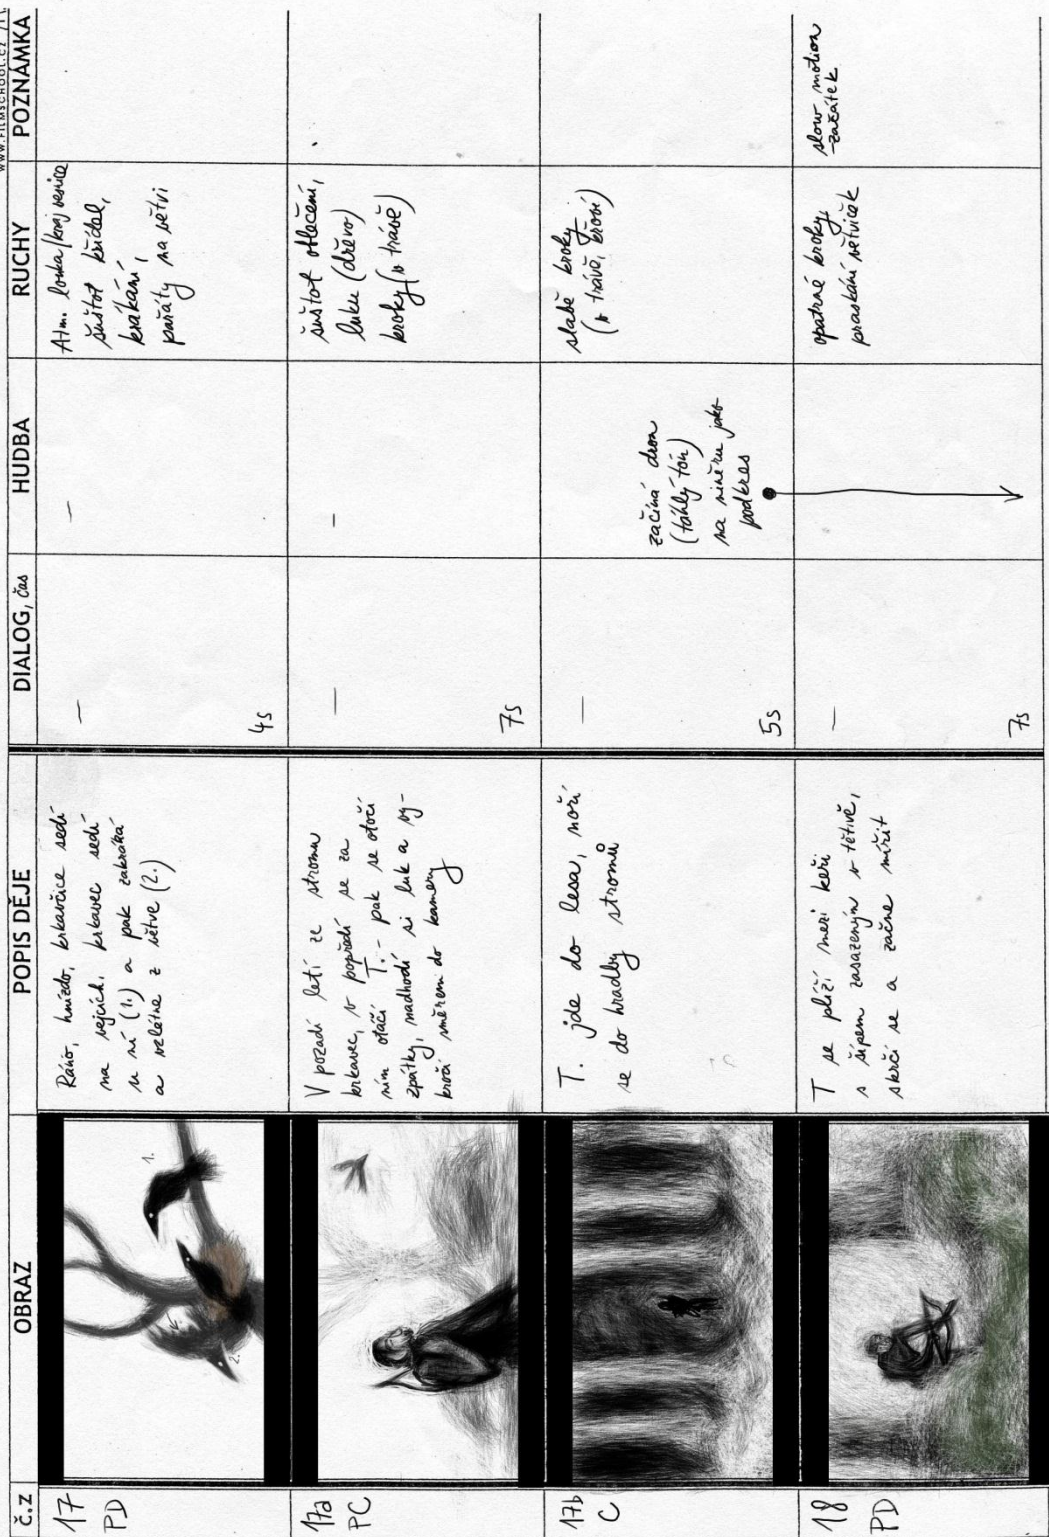 www.FILMSCHOOL.cz
č.z
OBRAZ
POPIS DĚJE
DIALOG, čas
HUDBA
RUCHY
POZNÁMKA
17
PD
1.
2.
Ráno, hnízdo, krkavčice sedí
na vejcích, krkavec sedí
u ní (1.) a pak zakráká
a vzlétne z větve (2.)
—
4s
—
Atm. louka/kraj vesnice
šustot křídel,
krákání,
pařáty na větvi
17a
PC
V pozadí letí ze stromu
krkavec, v popředí se za
ním otáčí T. - pak se otočí
zpátky, nadhodí si luk a vy-
kročí směrem do kamery
—
7s
—
šustot oblečení,
luku (dřevo)
kroky (v trávě)
17b
C
T. jde do lesa, noří
se do hradby stromů
—
5s
začíná dron
(táhlý tón)
na ninéru jako
podkres
slabé kroky
(v trávě, křoví)
18
PD
T se plíží mezi keři
s šípem zasazeným v tětivě,
skrčí se a začne mířit
—
7s
opatrné kroky,
praskání větviček
slow motion
začátek